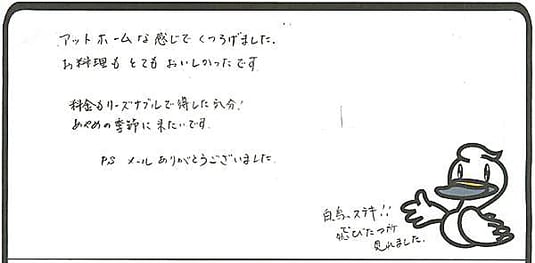 アットホームな感じでくつろげました。
お料理もとてもおいしかったです
料金もリーズナブルで得した気分!
あやめの季節に来たいです。
PS メールありがとうございました
白鳥、ステキ!!
飛びたつ所
見れました。